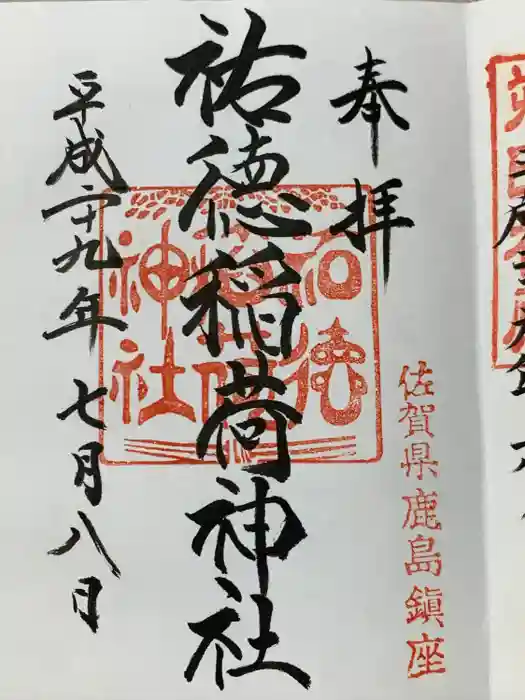 奉拝
佐賀県鹿島鎮座
祐徳稲荷神社
祐徳
稲荷
神社
平成二十九年七月八日